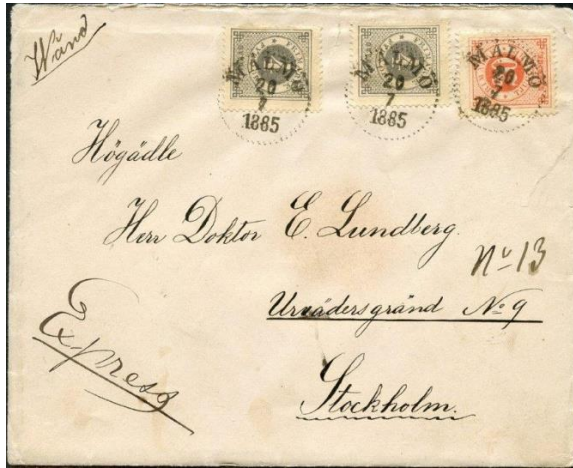 Wänd
MALMÖ
20
7
1885
MALMÖ
20
7
1885
MALMÖ
20
7
1885
Högädle
Herr Doktor E. Lundberg.
No 13
Urvädersgränd No 9
Express
Stockholm.